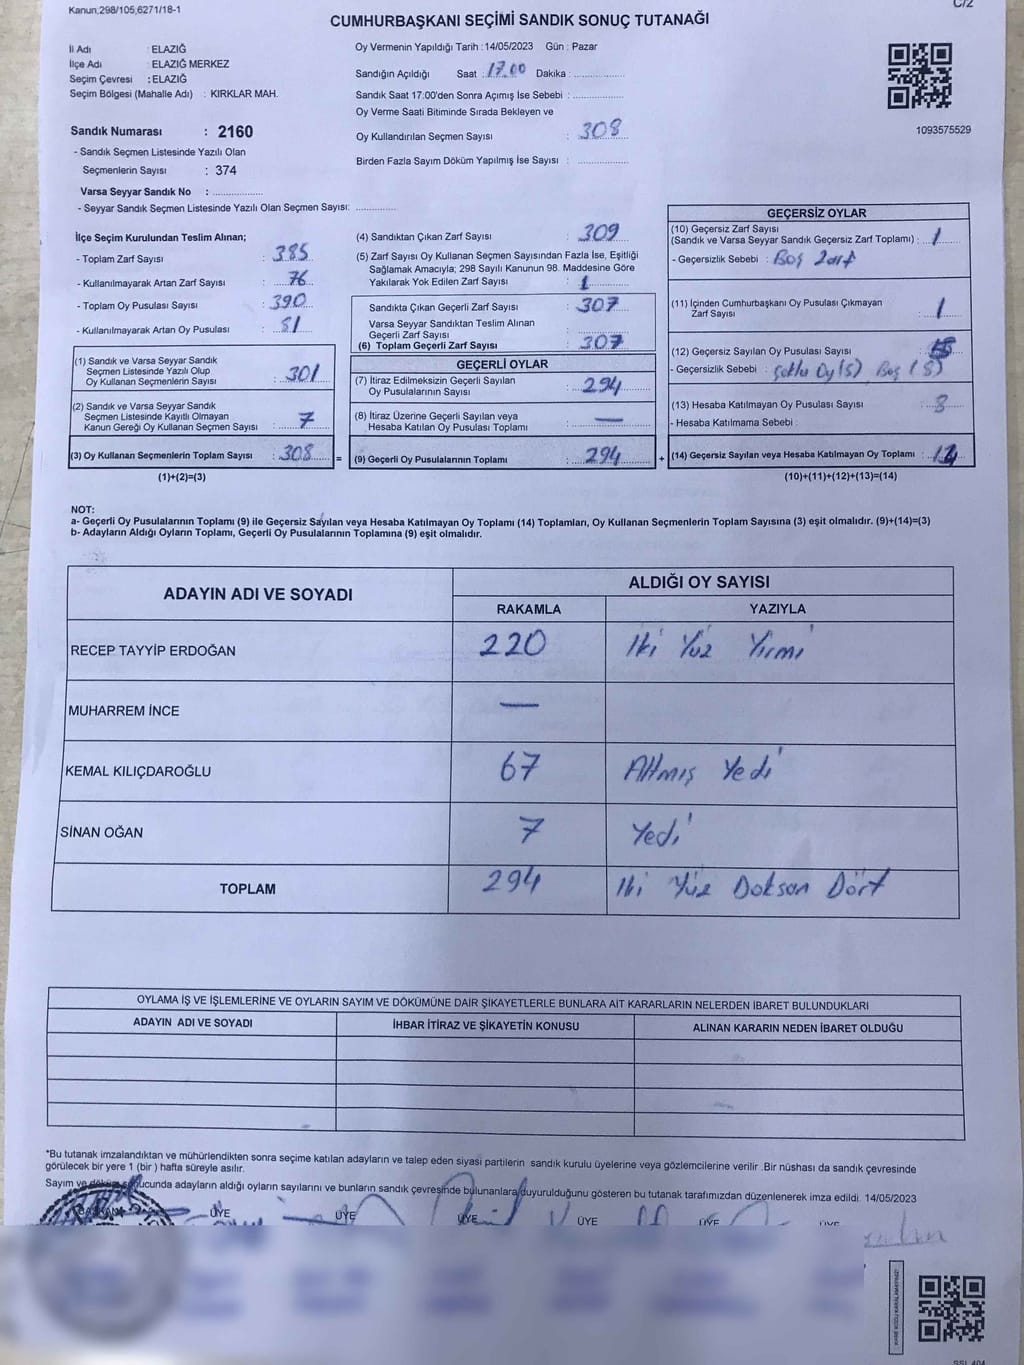 Kanun,298/105,6271/18-1
C/2
CUMHURBAŞKANI SEÇİMİ SANDIK SONUÇ TUTANAĞI
İl Adı : ELAZIĞ
İlçe Adı : ELAZIĞ MERKEZ
Seçim Çevresi : ELAZIĞ
Seçim Bölgesi (Mahalle Adı) : KIRKLAR MAH.
Sandık Numarası : 2160
- Sandık Seçmen Listesinde Yazılı Olan
Seçmenlerin Sayısı : 374
Varsa Seyyar Sandık No :
- Seyyar Sandık Seçmen Listesinde Yazılı Olan Seçmen Sayısı:
Oy Vermenin Yapıldığı Tarih :14/05/2023 Gün : Pazar
Sandığın Açıldığı Saat : 17.00 Dakika :
Sandık Saat 17:00'den Sonra Açımış İse Sebebi :
Oy Verme Saati Bitiminde Sırada Bekleyen ve
Oy Kullandırılan Seçmen Sayısı : 308
Birden Fazla Sayım Döküm Yapılmış İse Sayısı :
1093575529
İlçe Seçim Kurulundan Teslim Alınan;
- Toplam Zarf Sayısı : 385
- Kullanılmayarak Artan Zarf Sayısı : 76
- Toplam Oy Pusulası Sayısı : 390
- Kullanılmayarak Artan Oy Pusulası : 81
(1) Sandık ve Varsa Seyyar Sandık
Seçmen Listesinde Yazılı Olup
Oy Kullanan Seçmenlerin Sayısı : 301
(2) Sandık ve Varsa Seyyar Sandık
Seçmen Listesinde Kayıtlı Olmayan
Kanun Gereği Oy Kullanan Seçmen Sayısı : 7
(3) Oy Kullanan Seçmenlerin Toplam Sayısı : 308
(1)+(2)=(3)
=
(4) Sandıktan Çıkan Zarf Sayısı : 309
(5) Zarf Sayısı Oy Kullanan Seçmen Sayısından Fazla İse, Eşitliği
Sağlamak Amacıyla; 298 Sayılı Kanunun 98. Maddesine Göre
Yakılarak Yok Edilen Zarf Sayısı : 1
Sandıkta Çıkan Geçerli Zarf Sayısı : 307
Varsa Seyyar Sandıktan Teslim Alınan
Geçerli Zarf Sayısı :
(6) Toplam Geçerli Zarf Sayısı : 307
GEÇERLİ OYLAR
(7) İtiraz Edilmeksizin Geçerli Sayılan
Oy Pusulalarının Sayısı : 294
(8) İtiraz Üzerine Geçerli Sayılan veya
Hesaba Katılan Oy Pusulası Toplamı : —
(9) Geçerli Oy Pusulalarının Toplamı : 294
+
GEÇERSİZ OYLAR
(10) Geçersiz Zarf Sayısı
(Sandık ve Varsa Seyyar Sandık Geçersiz Zarf Toplamı) : 1
- Geçersizlik Sebebi : Boş Zarf
(11) İçinden Cumhurbaşkanı Oy Pusulası Çıkmayan
Zarf Sayısı : 1
(12) Geçersiz Sayılan Oy Pusulası Sayısı :
- Geçersizlik Sebebi : Çoklu Oy(5) Boş (5)
(13) Hesaba Katılmayan Oy Pusulası Sayısı :
- Hesaba Katılmama Sebebi :
(14) Geçersiz Sayılan veya Hesaba Katılmayan Oy Toplamı :
(10)+(11)+(12)+(13)=(14)
NOT:
a- Geçerli Oy Pusulalarının Toplamı (9) ile Geçersiz Sayılan veya Hesaba Katılmayan Oy Toplamı (14) Toplamları, Oy Kullanan Seçmenlerin Toplam Sayısına (3) eşit olmalıdır. (9)+(14)=(3)
b- Adayların Aldığı Oyların Toplamı, Geçerli Oy Pusulalarının Toplamına (9) eşit olmalıdır.
ADAYIN ADI VE SOYADI
ALDIĞI OY SAYISI
RAKAMLA YAZIYLA
RECEP TAYYİP ERDOĞAN 220 İki Yüz Yirmi
MUHARREM İNCE —
KEMAL KILIÇDAROĞLU 67 Altmış Yedi
SİNAN OĞAN 7 Yedi
TOPLAM 294 İki Yüz Doksan Dört
OYLAMA İŞ VE İŞLEMLERİNE VE OYLARIN SAYIM VE DÖKÜMÜNE DAİR ŞİKAYETLERLE BUNLARA AİT KARARLARIN NELERDEN İBARET BULUNDUKLARI
ADAYIN ADI VE SOYADI İHBAR İTİRAZ VE ŞİKAYETİN KONUSU ALINAN KARARIN NEDEN İBARET OLDUĞU
*Bu tutanak imzalandıktan ve mühürlendikten sonra seçime katılan adayların ve talep eden siyasi partilerin sandık kurulu üyelerine veya gözlemcilerine verilir .Bir nüshası da sandık çevresinde
görülecek bir yere 1 (bir ) hafta süreyle asılır.
Sayım ve döküm sonucunda adayların aldığı oyların sayılarını ve bunların sandık çevresinde bulunanlara duyurulduğunu gösteren bu tutanak tarafımızdan düzenlenerek imza edildi. 14/05/2023
BAŞKAN ÜYE ÜYE ÜYE ÜYE ÜYE ÜYE